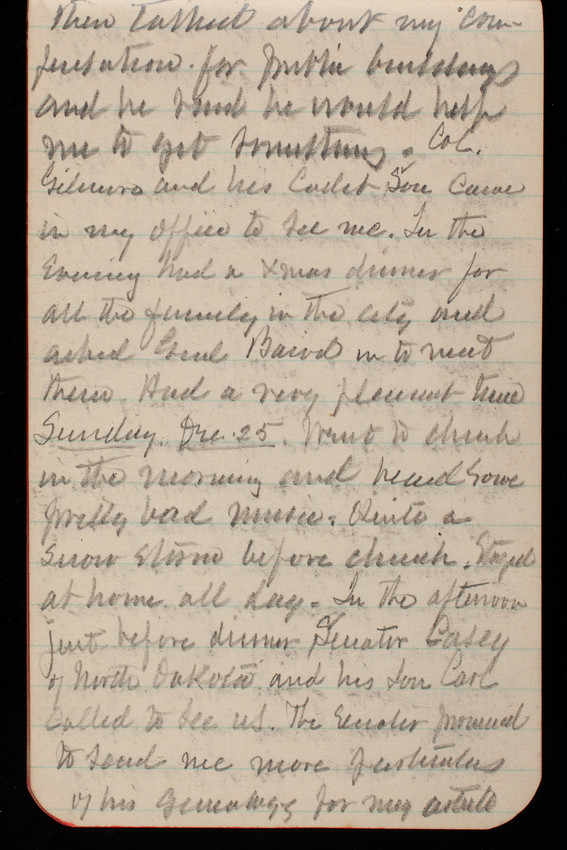 then talked about my com-
putation for public buildings
and he said he would help
me to get something. Col.
Gilmore and his Cadet Son came
in my office to see me. In the
Evening had a Xmas dinner for
all the family in the city and
asked Genl Baird in to meet
them. Had a very pleasant time
Sunday. Dec. 25. Went to church
in the morning and heard some
pretty bad music. Quite a
snow storm before church. Stayed
at home all day. In the afternoon
just before dinner Senator Casey
of North Dakota and his Son Carl
called to see us. The Senator promised
to send me more particulars
of his genealogy for my article